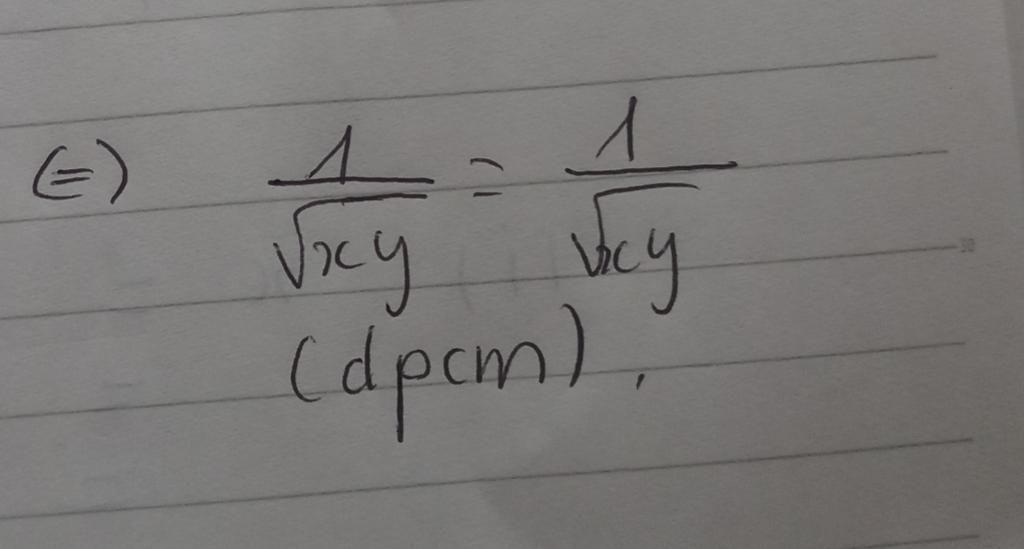 (=) 1/√xy = 1/√xy
(dpcm).